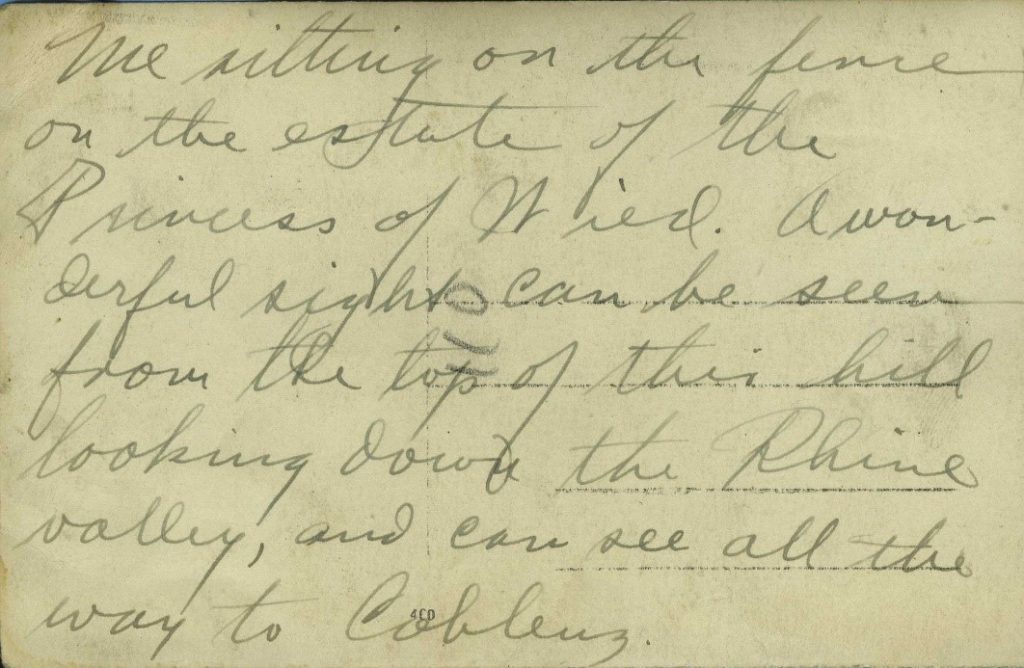 Me sitting on the fence
on the estate of the
Princess of Wied. A won-
derful sight can be seen
from the top of this hill
looking down the Rhine
valley, and can see all the
way to Coblenz.
400